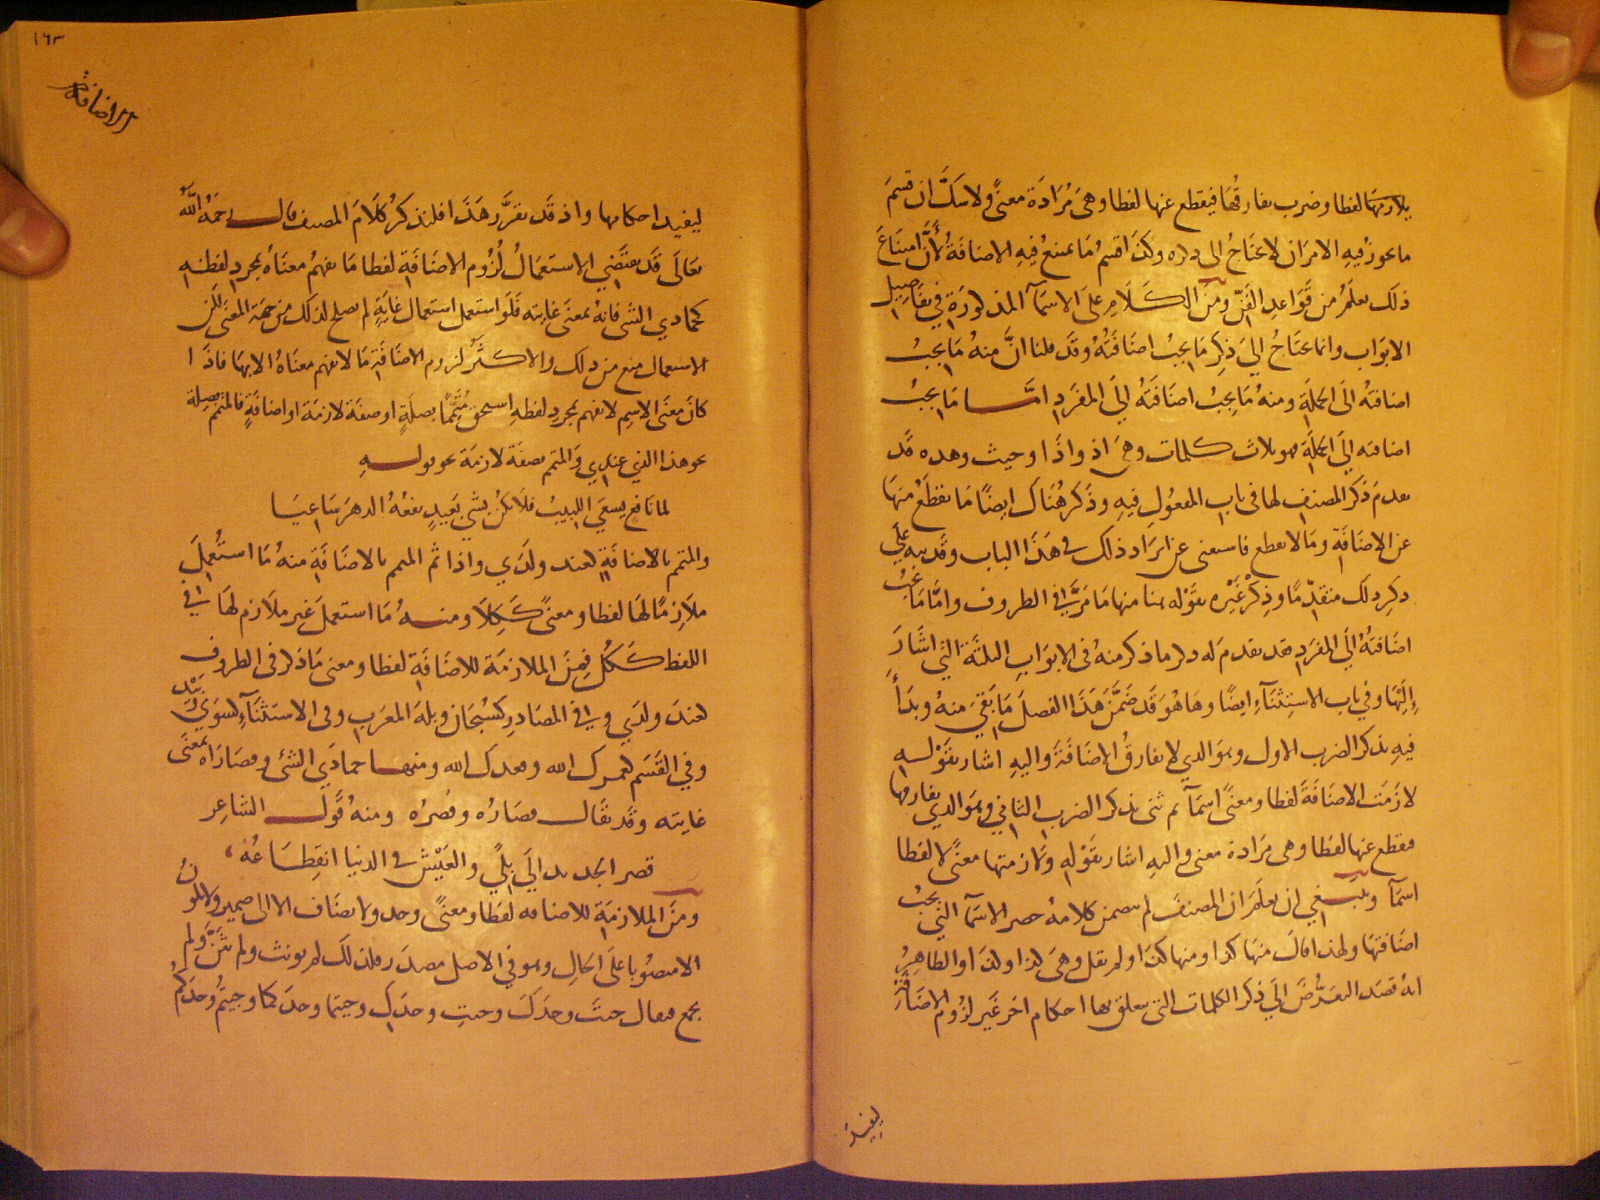 يلازمها لفظا وضرب يفارقها فيقطع عنها لفظا وهى مرادة معنى ولا شك ان قسم
ما يجوز فيه الامران لا يحتاج الى ذكره وكذا قسم ما يمتنع فيه الاضافة لأن امتناع
ذلك يعلم من قواعد الفن ومن الكلام على الاسماء المذكورة في تفاصيل
الابواب وانما يحتاج الى ذكر ما يجب اضافته وقد قلنا ان منه ما يجب
اضافته الى الجملة ومنه ما يجب اضافته الى المفرد اما ما يجب
اضافته الى الجملة فهو ثلاث كلمات وهى اذ واذا وحيث وهذه قد
تقدم ذكر المصنف لها فى باب المفعول فيه وذكر هناك ايضا ما يقطع منها
عن الاضافة وما لا يقطع فاستغنى عن ايراد ذلك فى هذا الباب وقد نبه على
ذكر ذلك متقدما وذكر غيره بقوله هنا منها ما مر في الظروف واما ما يجب
اضافته الى المفرد فقد تقدم له ذكر ما ذكر منه فى الابواب الثلثة التي اشار
إليها وفي باب الاستثناء ايضا وها هو قد ضمن هذا الفصل ما بقي منه وبدأ
فيه بذكر الضرب الاول وهو الذي لا يفارق الاضافة واليه اشار بقوله
لازمت الاضافة لفظا ومعنى اسماء ثم ثنى بذكر الضرب الثاني وهو الذي يفارقها
فيقطع عنها لفظا وهى مرادة معنى واليه اشار بقوله ولازمتها معنى لا لفظا
اسماء وينبغي ان يعلم ان المصنف لم يضمن كلامه حصر الاسماء التي يجب
اضافتها ولهذا قال منها كذا ومنها كذا ولم يقل وهى كذا وكذا والظاهر
انه قصد التعرض الى ذكر الكلمات التى يتعلق بها احكام اخر غير لزوم الاضافة
ليفيد
١٦٣
الاضافة
ليفيد احكامها واذ قد تقرر هذا فلنذكر كلام المصنف قال رحمه الله
تعالى قد يقتضي الاستعمال لزوم الاضافة لفظا ما يفهم معناه بمجرد لفظه
كحمادي الشى فانه بمعنى غايته فلو استعمل استعمال غاية لم يصلح لذلك من جهة المعنى لكن
الاستعمال منع من ذلك والاكثر لزوم الاضافة ما لا يفهم معناه الا بها فاذا
كان معنى الاسم لا يفهم بمجرد لفظه استحق متمما بصلة او صفة لازمة او اضافة فالمتمم بصلة
نحو هذا الذي عندي والمتمم بصفة لازمة نحو قوله
لما نافع يسعى اللبيب فلا تكن بشي بعيد نفعه الدهر ساعيا
والمتمم بالاضافة كعند ولدي واذا ثم المتمم بالاضافة منه ما استعمل
ملازما لها لفظا ومعنى ككلا ومنه ما استعمل غير ملازم لها في
اللفظ ككل فمن الملازمة للاضافة لفظا ومعنى ما ذكر فى الظروف
كعند ولدي وفي المصادر كسبحان وبله المعرب وفى الاستثناء كسوى وبيد
وفي القسم كعمرك الله وقعدك الله ومنها حمادي الشئ وقصاراه بمعنى
غايته وقد يقال قصاره وقصره ومنه قول الشاعر
قصر الجديد الى بلي والعيش فى الدنيا انقطاعه
ومن الملازمة للاضافه لفظا ومعنى وحد ولا يضاف الا الى ضمير ولا يكون
الا منصوبا على الحال وهو في الاصل مصدر فلذلك لم يونث ولم يثن ولم
يجمع فيقال جئت وحدك وجئت وحدك وجئتما وحدكما وجيتم وحدكم